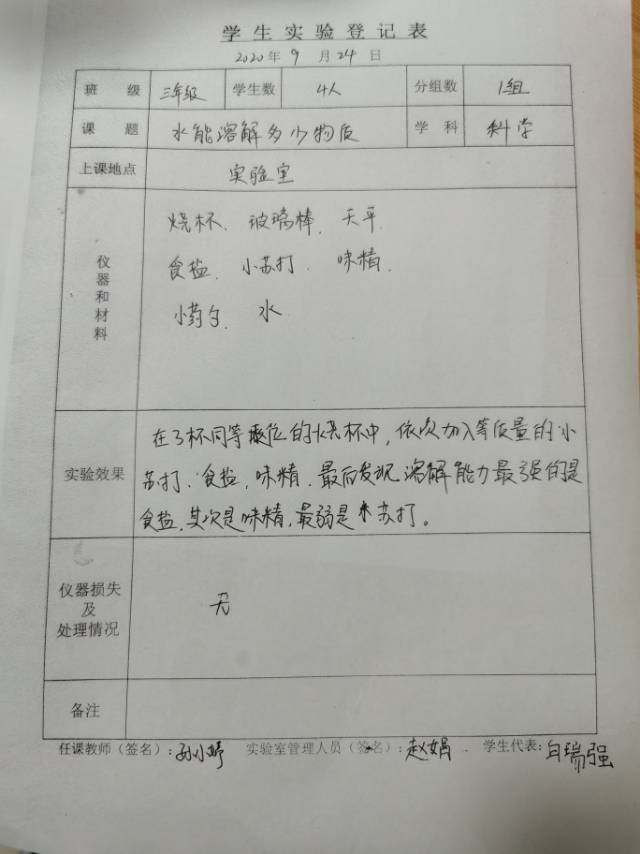 学生实验登记表
2020年 9 月 24 日
班 级 三年级 学生数 4人 分组数 1组
课 题 水能溶解多少物质 学 科 科学
上课地点 实验室
仪器和材料
烧杯、玻璃棒、天平
食盐、小苏打、味精、
小药勺、水
实验效果
在3杯同等液位的烧杯中,依次加入等质量的小
苏打、食盐,味精,最后发现溶解能力最强的是
食盐,其次是味精,最弱是小苏打。
仪器损失
及
处理情况
无
备注
任课教师(签名):孙小婷 实验室管理人员(签名):赵娟 学生代表:白瑞强